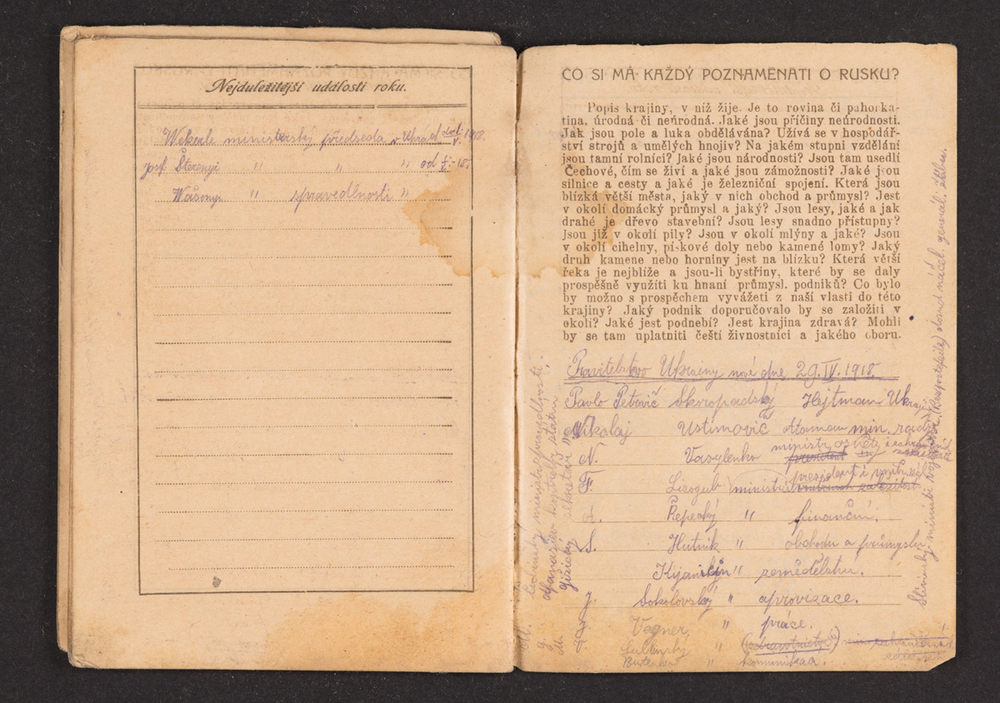 Nejdůležitější události roku.
Wekerle ministerský předseda v Uhrad od 1918.
Josf. Šterenyi " " " od -18.
Wášonyi " spravedlnosti "
CO SI MÁ KAŽDÝ POZNAMENATI O RUSKU?
Popis krajiny, v níž žije. Je to rovina či pahorka-
tina, úrodná či neúrodná. Jaké jsou příčiny neúrodnosti.
Jak jsou pole a luka obdělávána? Užívá se v hospodář-
ství strojů a umělých hnojiv? Na jakém stupni vzdělání
jsou tamní rolníci? Jaké jsou národnosti? Jsou tam usedlí
Čechové, čím se živí a jaké jsou zámožnosti? Jaké jsou
silnice a cesty a jaké je železniční spojení. Která jsou
blízká větší města, jaký v nich obchod a průmysl? Jest
v okolí domácký průmysl a jaký? Jsou lesy, jaké a jak
drahé je dřevo stavební? Jsou lesy snadno přístupny?
Jsou již v okolí pily? Jsou v okolí mlýny a jaké? Jsou
v okolí cihelny, pí-kové doly nebo kamené lomy? Jaký
druh kamene nebo horniny jest na blízku? Která větší
řeka je nejblíže a jsou-li bystřiny, které by se daly
prospěšně využíti ku hnaní průmysl. podniků? Co bylo
by možno s prospěchem vyvážeti z naší vlasti do této
krajiny? Jaký podnik doporučovalo by se založiti v
okolí? Jaké jest podnebí? Jest krajina zdravá? Mohli
by se tam uplatniti čeští živnostníci a jakého oboru.
Pravitelstvo Ukrainy nové dne 29.IV.1918.
Pavlo Petrovič Skoropadský Hejtman Ukrajiny
Nikolaj Ustimovič ataman min. rady
N. Vasylenko ministr osvěty i
F. Lisogub president i
A. Řepecký " finanční.
S. Hutnik " obchodu a průmyslu
Kijanicyn " zemědělství.
J. Sokolovský " aprovisace.
Vagner " práce.
Lubenský "
Butenko " komunikac.
M. ministr spravedlnosti
státní
Gižický sekretář